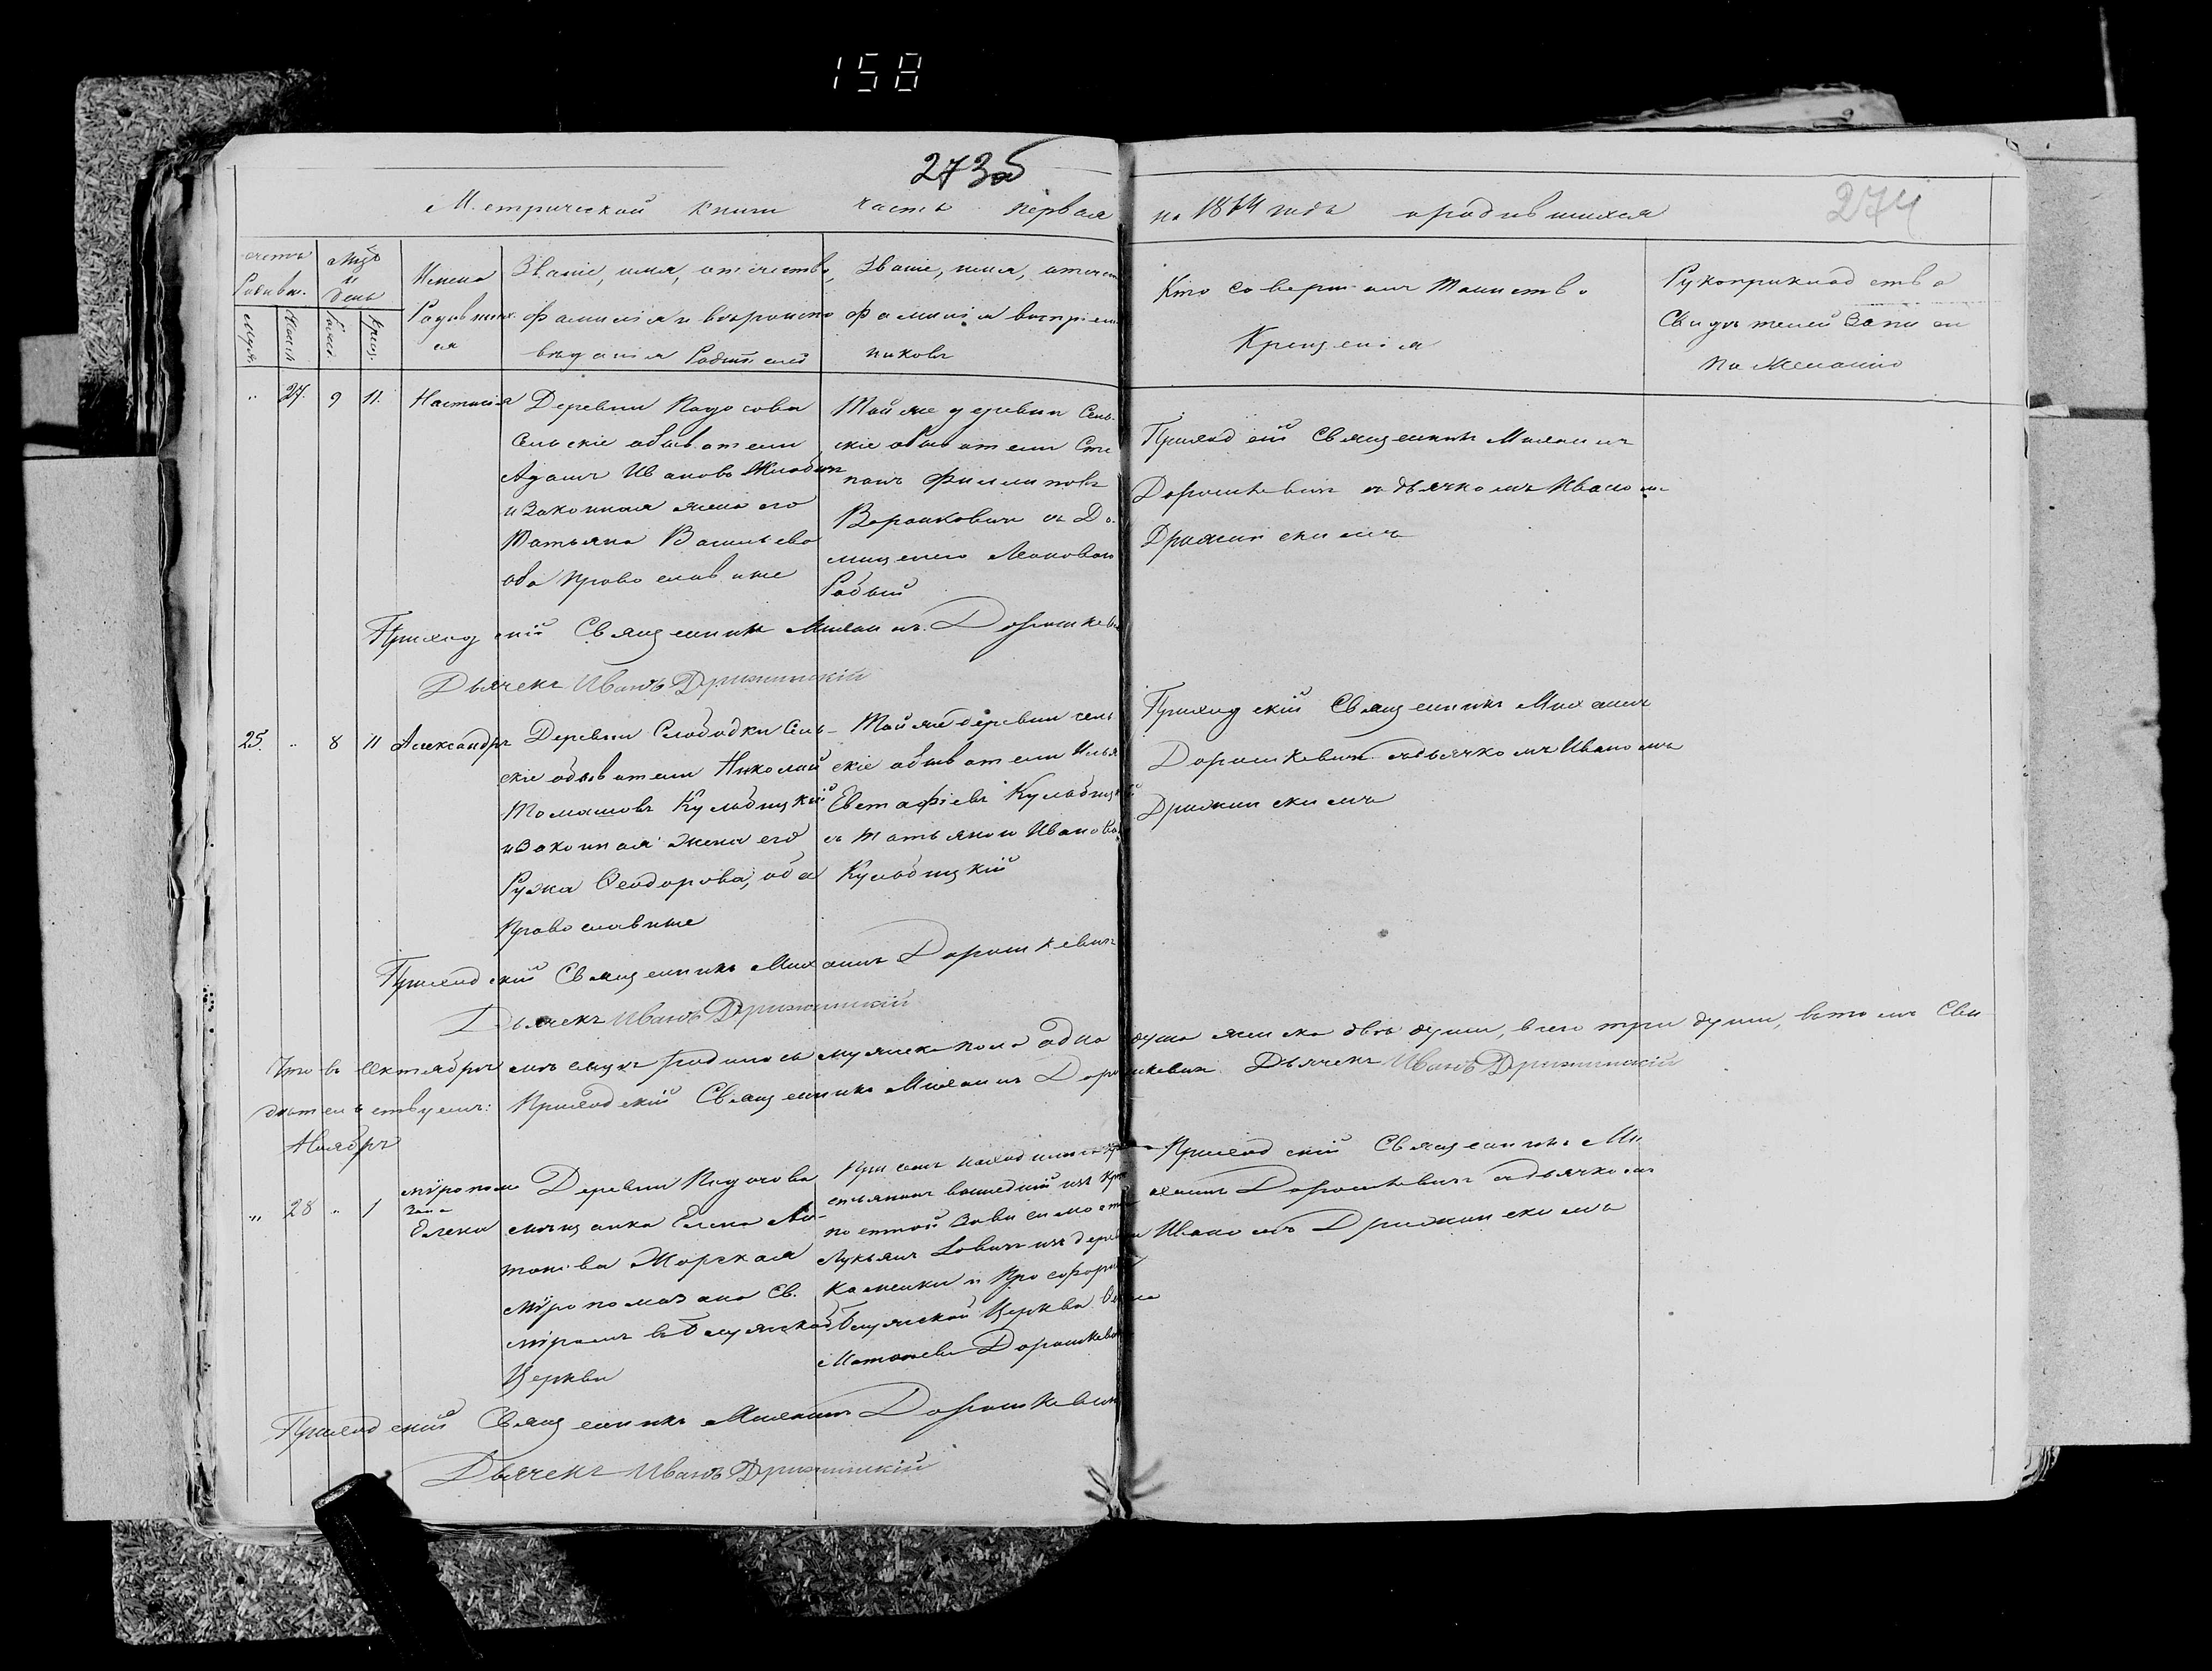 158
273об
274
Метрической книги часть первая на 1874 годъ о родившихся
Счетъ Родивш.
Мѣсъ и день
Имена Родившихся
Званіе, имя, отечество, фамилія и вѣроисповѣданія Родителей
Званіе, имя, отечест. фамилія воспріемниковъ
Кто совершалъ таинство Крещенія
Рукоприкладство Свидѣтелей Записи по Желанію
Муж. Женс. Рожд. Крещ.
" 27. 9 11. Настасія
Деревни
Сельскіе обыватели
Адамъ Ивановъ
и Законная жена его
Татьяна Васильева
оба православные
Той же деревни Сель-
скіе обыватели Сте
панъ Филиповъ
Воронковичъ съ До-
Рабый
Приходскій Священникъ Михаилъ
Дорошкевичъ съ дьячкомъ Иваномъ
Дрижинскимъ
Приходскій Священникъ Михаилъ Дорошкевичъ
Дьячекъ Иванъ Дрижинскій
25. " 8 11 Александръ
Деревни Слободки Сель-
скіе обыватели Николай
Томашовъ Кульбицкій
и Законная жена его
Ружа Ѳеодорова, оба
Православные
Той же деревни сель
скіе обыватели Илья
Евстафіевъ Кульбицкій
съ Татьяною Иванова
Кульбицкій
Приходскій Священникъ Михаилъ
Дорошкевичъ съ дьячкомъ Иваномъ
Дрижинскимъ
Приходскій Священникъ Михаилъ Дорошкевичъ
Дьячекъ Иванъ Дрижинскій
Что въ Октябрѣ мѣсяцѣ родилось мужеска пола одна душа женска двѣ души, всего три души, въ томъ Сви
дѣтельствуемъ: Приходскій Священникъ Михаилъ Дорошкевичъ Дьячекъ Иванъ Дрижинскій
Ноябрь
" 28 " 1
мѵропома
зана
Елена
Деревни
мѣщанка Елена Ан-
тонова Жорская
мѵропомазана Св.
мѵромъ въ Блужской
Церкви
При семъ находились кре
стьянинъ вышедшій изъ Крѣ
постной Зависимости
Лукьянъ изъ деревни
Каменки и Просфорня
Блужской Церкви
Матѳеева Дорошкевич
Приходскій Священникъ Ми
хаилъ Дорошкевичъ съ дьячкомъ
Иваномъ Дрижинскимъ
Приходскій Священникъ Михаилъ Дорошкевичъ
Дьячекъ Иванъ Дрижинскій